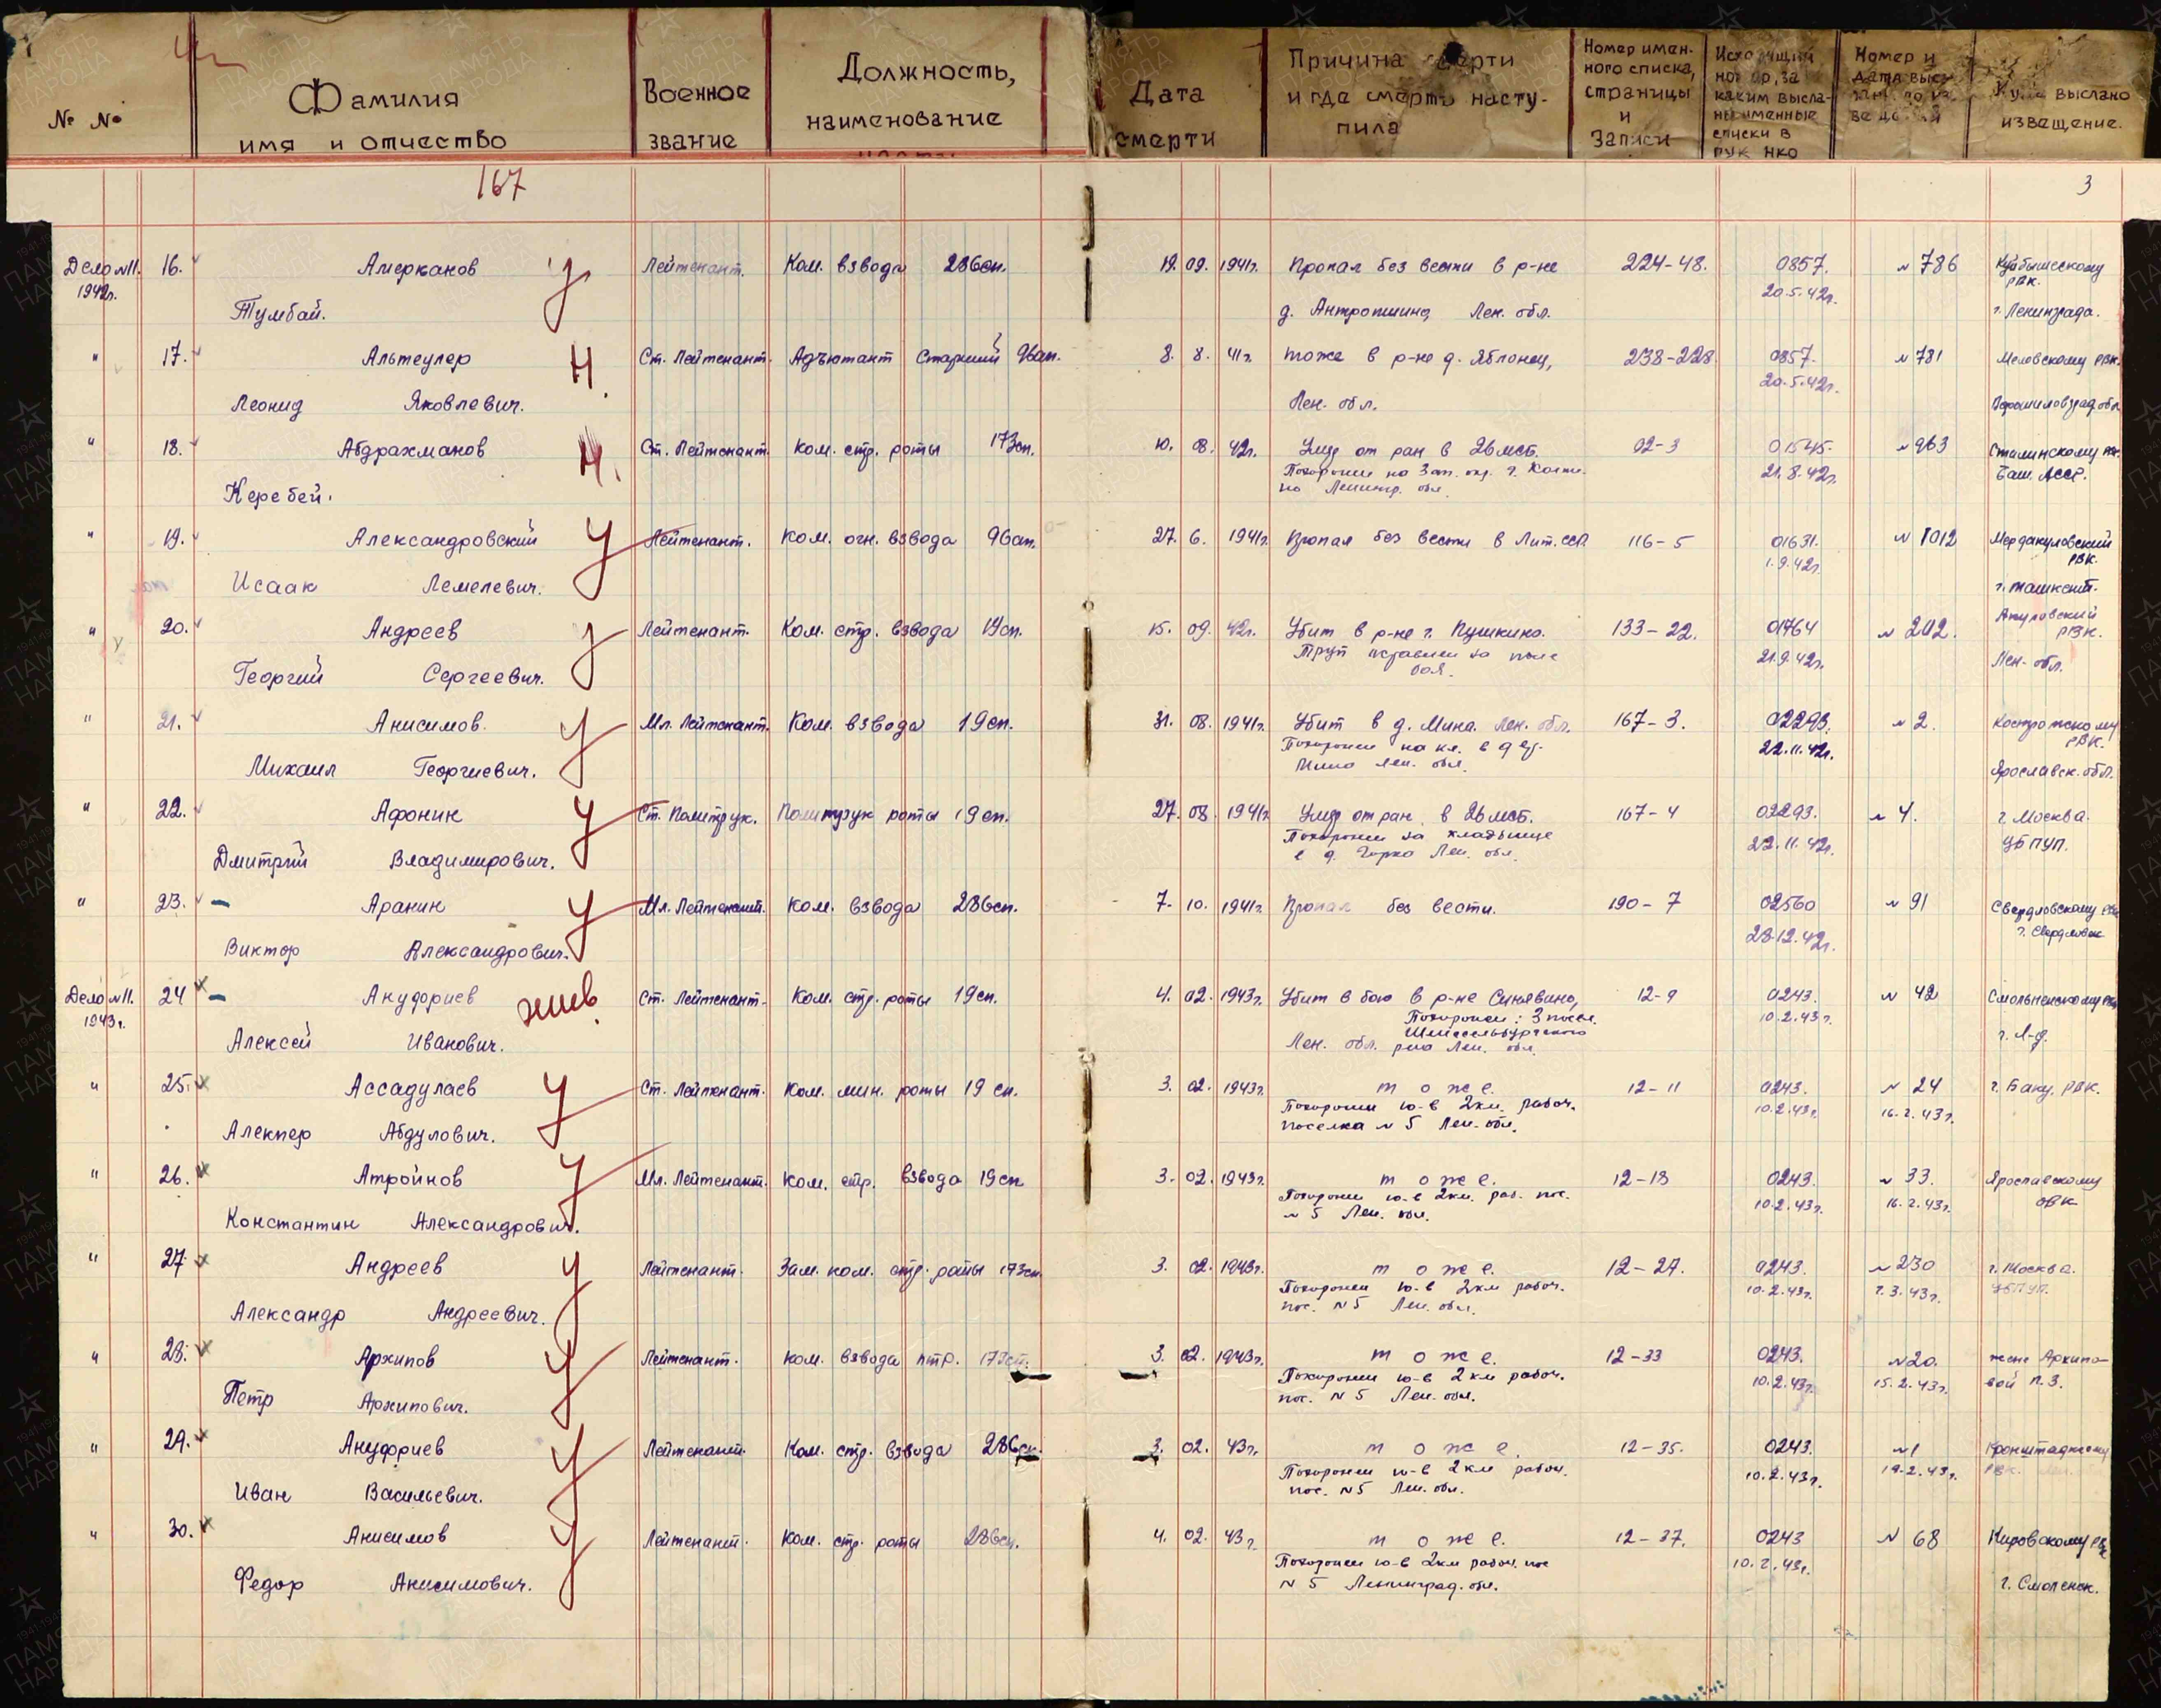 № №
Фамилия
имя и отчество
Военное
звание
Должность,
наименование
части
Дата
смерти
Причина смерти
и где смерть насту-
пила
Номер имен-
ного списка,
страницы
и
записи
Исходящий
номер, за
каким высла-
ны именные
списки в
рук НКО
Номер и
дата
Куда выслано
извещение.
167
3
Дело №11. 16. Амерканов У Лейтенант. Ком. взвода 286сп. 19. 09. 1941г. Пропал без вести в р-не 224-48. 0857. №786 Куйбышескому
1942г. РВК.
20.5.42г.
Тумбай. д. Антропшино, Лен. обл. г. Ленинграда.
" 17. Альтеулер Н. Ст. Лейтенант. Адъютант Старший 96ап. 8. 8. 41г. тоже в р-не д. Яблонец, 238-228. 0857. №781 Меловскому РВК.
20.5.42г.
Леонид Яковлевич. Лен. обл. Ворошиловград.обл.
" 18. Абдрахманов Н. Ст. Лейтенант. Ком. стр. роты 173сп. 10. 08. 42г. Умер от ран в 26 мсб. 02-3 01545. №963 Сталинскому
Похоронен на Зап. окр. г. Колпи- 21.8.42г. Баш. АССР.
Керебей. но Ленингр. обл.
" 19. Александровский У Лейтенант. Ком. огн. взвода 96ап. 27. 6. 1941г. Пропал без вести в Лит.ССР. 116-5 01631. №1012 Мердакуловский
1.9.42г. РВК.
Исаак Лемелевич. г. Ташкент.
" 20. Андреев У Лейтенант. Ком. стр. взвода 19сп. 15. 09. 42г. Убит в р-не г. Пушкино. 133-22. 01764 №202. Акуловский
Труп оставлен на поле 21.9.42г. РВК.
боя. Лен. обл.
Георгий Сергеевич.
" 21. Анисимов. У Мл. Лейтенант. Ком. взвода 19сп. 31. 08. 1941г. Убит в д. Мина. Лен. обл. 167-3. 02293. №2. Костромскому
Похоронен на кл. в дер. 22.11.42г. РВК.
Михаил Георгиевич. Мина Лен. обл. Ярославск. обл.
" 22. Афонин У Ст. Политрук. Политрук роты 19сп. 27. 08. 1941г. Умер от ран. в 26 мсб. 167-4 02293. №4. г. Москва.
Похоронен на кладбище 22.11.42г. УБПУП.
Дмитрий Владимирович. в д. Горка Лен. обл.
" 23. Аранин У Мл. Лейтенант. Ком. взвода 286сп. 7. 10. 1941г. Пропал без вести. 190-7 02560 №91 Свердловскому РВК
23.12.42г. г. Свердловск
Виктор Александрович.
Дело №11. 24 Ануфриев жив. Ст. Лейтенант. Ком. стр. роты 19сп. 4. 02. 1943г. Убит в бою в р-не Синявино, 12-9 0243. №42 Смольненскому РВК
1943г. Похоронен: 3 посел. 10.2.43г.
Шлиссельбургского
Алексей Иванович. Лен. обл. р-на Лен. обл. г. Л-д.
" 25. Ассадулаев У Ст. Лейтенант. Ком. мин. роты 19 сп. 3. 02. 1943г. тоже. 12-11 0243. №24 г. Баку. РВК.
Похоронен ю-в 2км. рабоч. 10.2.43г. 16.2.43г.
Алекпер Абдулович. поселка №5 Лен. обл.
" 26. Атройнов У Мл. Лейтенант. Ком. стр. взвода 19сп 3. 02. 1943г. тоже. 12-18 0243. №33. Ярославскому
Похоронен ю-в 2км. раб. пос. 10.2.43г. 16.2.43г. ОВК
Константин Александрович. №5 Лен. обл.
" 27 Андреев У Лейтенант. Зам. ком. стр. роты 173сп. 3. 02. 1943г. тоже. 12-27. 0243. №230 г. Москва.
Похоронен ю-в 2км рабоч. 10.2.43г. 7.3.43г. УБПУП.
Александр Андреевич. пос. №5 Лен. обл.
" 28. Архипов У Лейтенант. Ком. взвода ПТР. 173сп. 3. 02. 1943г. тоже. 12-33 0243. №20. жене Архипо-
Похоронен ю-в 2км рабоч. 10.2.43г. 15.2.43г. вой П.З.
Петр Архипович. пос. №5 Лен. обл.
" 29. Ануфриев У Лейтенант. Ком. стр. взвода 286сп. 3. 02. 43г. тоже. 12-35. 0243. №1 Кронштадтскому
Похоронен ю-в 2км рабоч. 10.2.43г. 19.2.43г. РВК.
Иван Васильевич. пос. №5 Лен. обл.
" 30. Анисимов У Лейтенант. Ком. стр. роты 286сп. 4. 02. 43г. тоже. 12-37. 0243 №68 Кировскому РВК
Похоронен ю-в 2км рабоч. пос 10.2.43г.
Федор Анисимович. №5 Ленинград. обл. г. Смоленск.